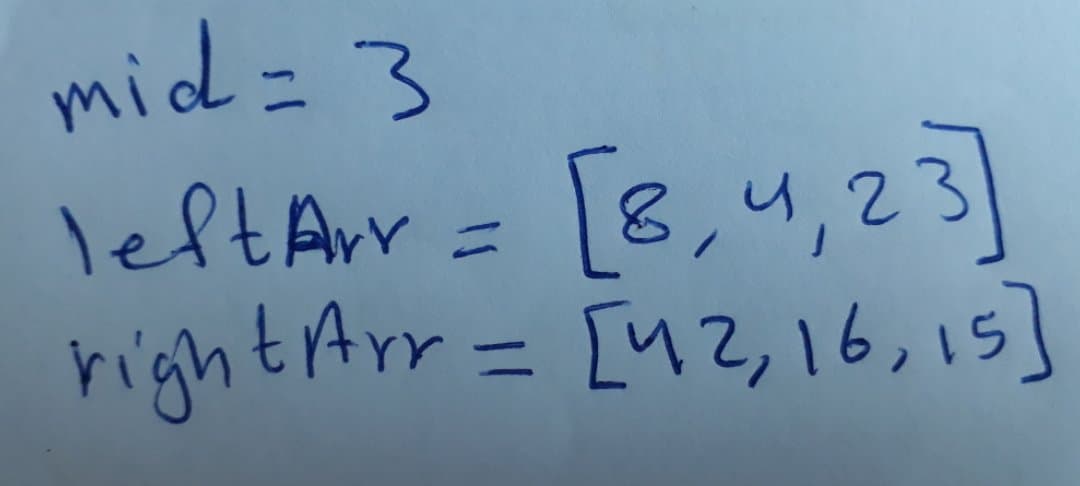 mid = 3
leftArr = [8, 4, 23]
rightArr = [42, 16, 15]